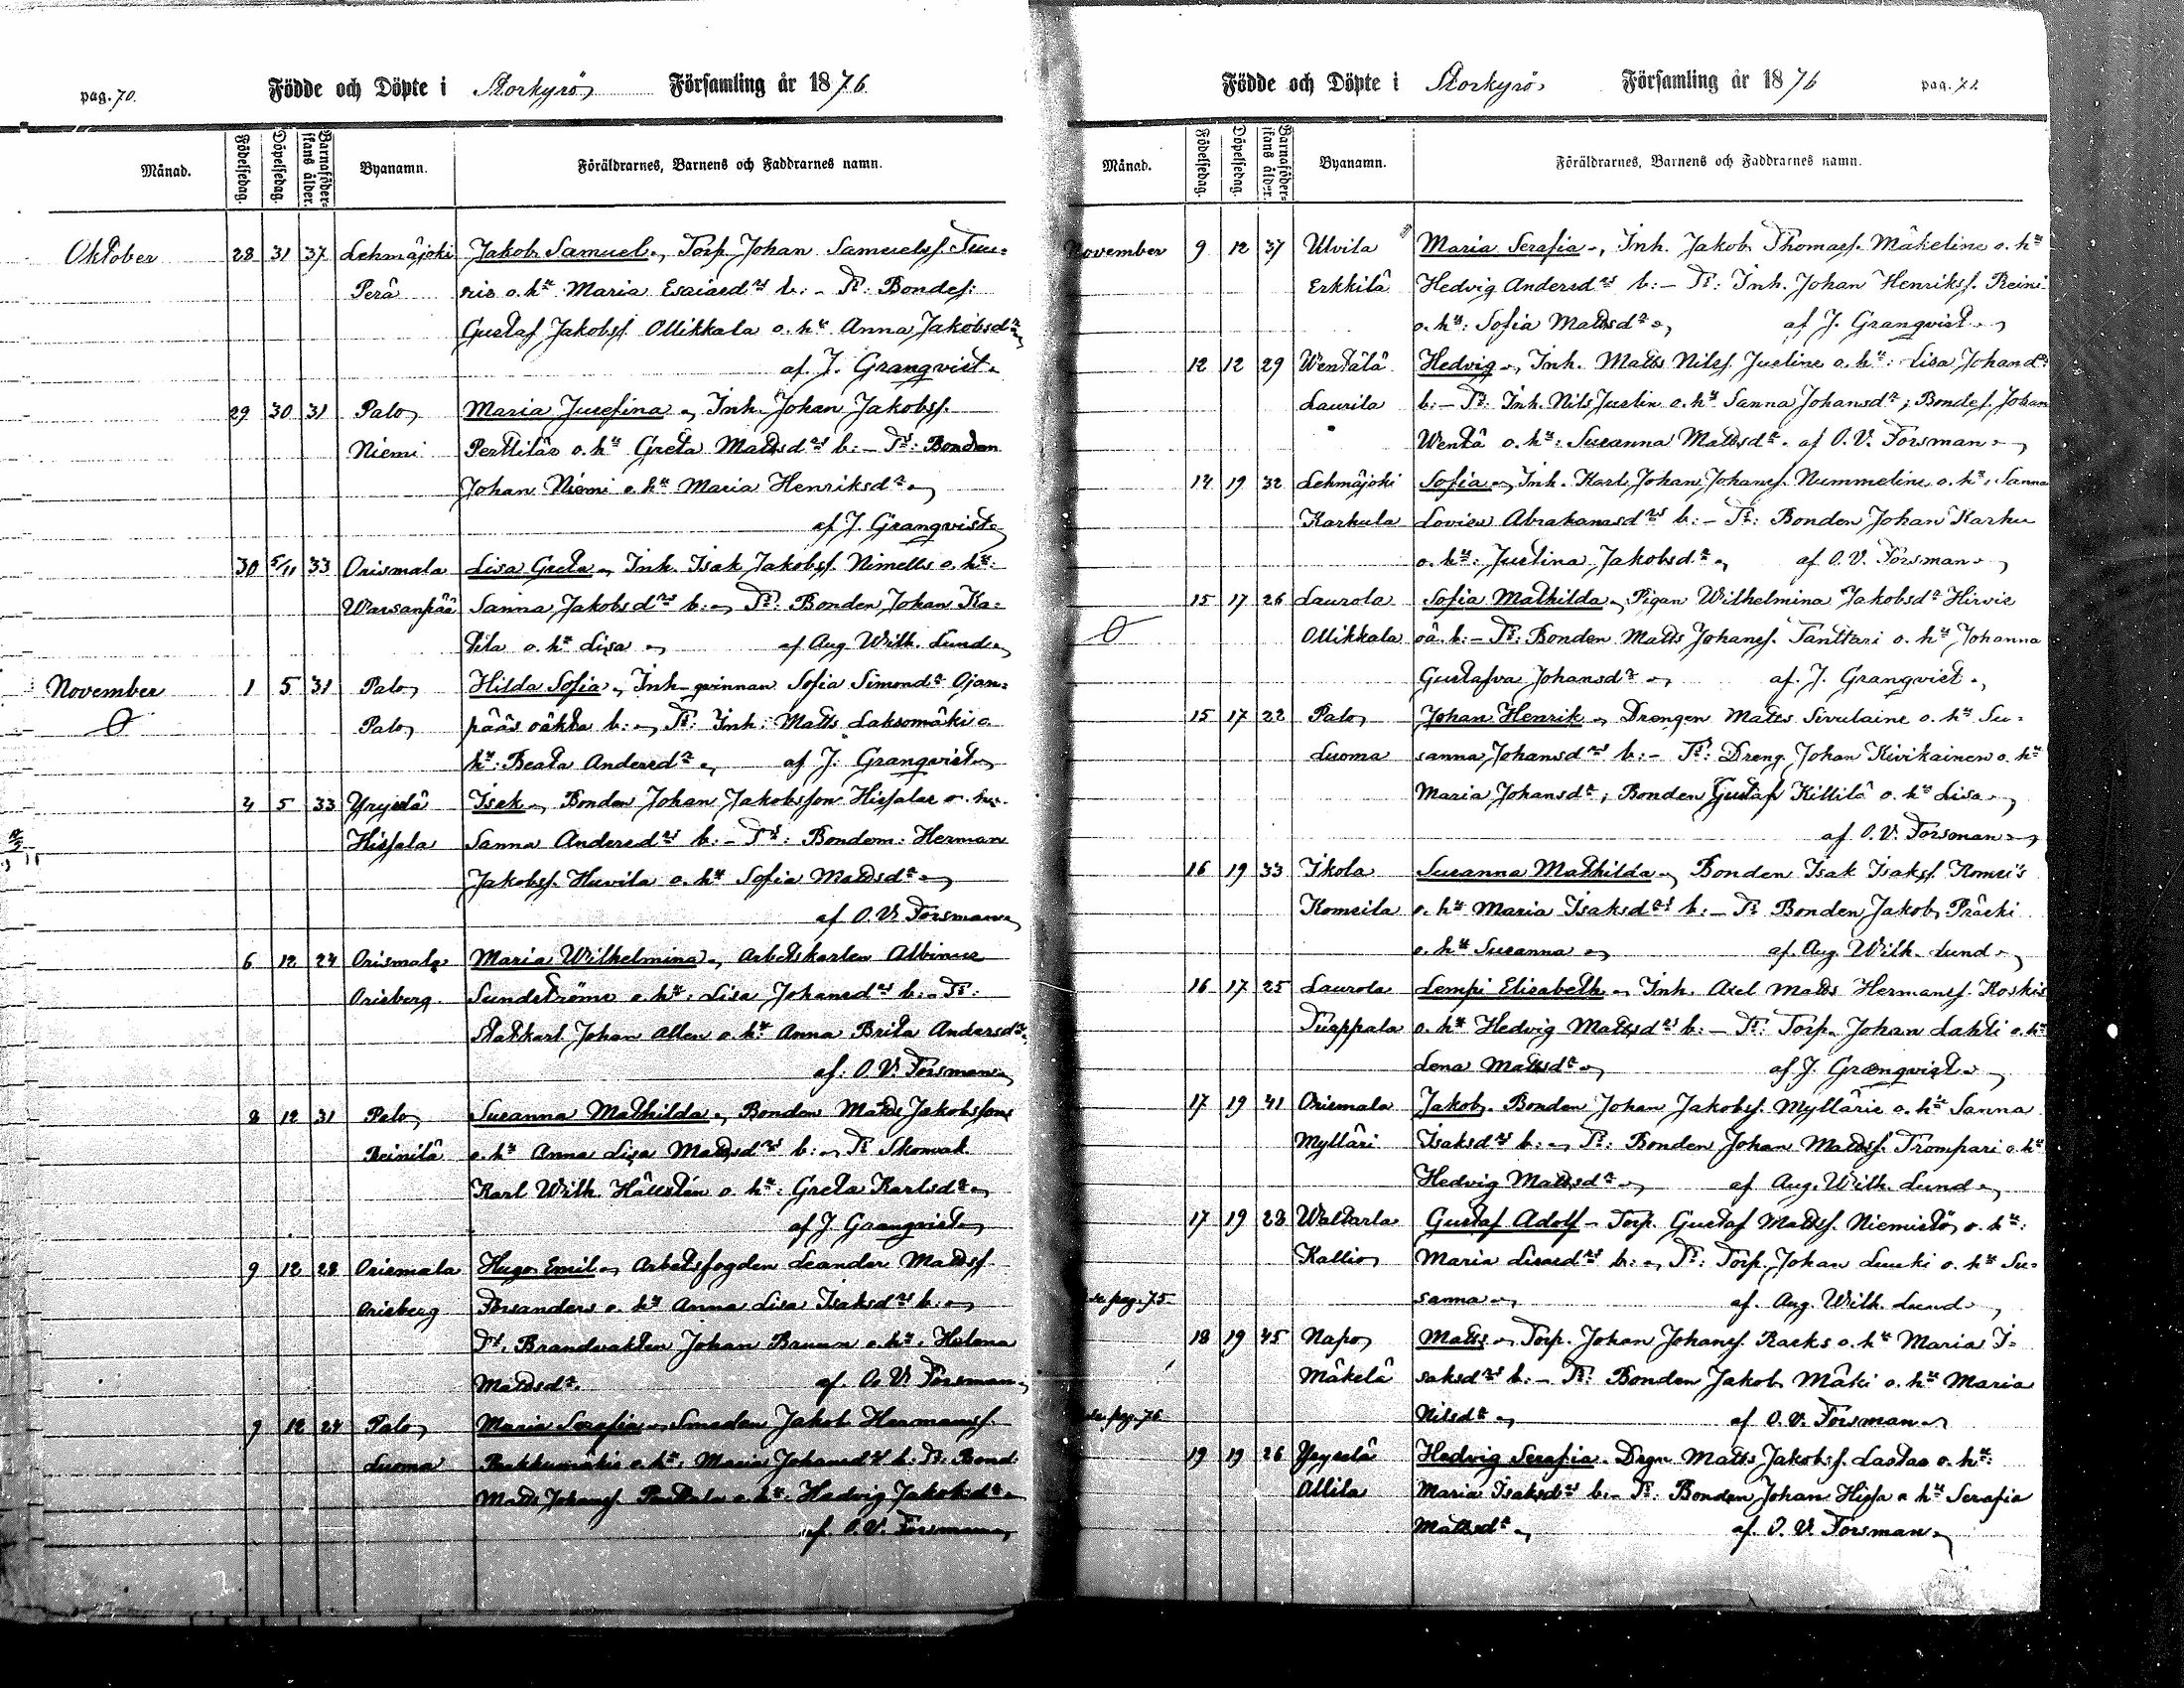 pag. 70.
Födde och Döpte i Storkyrö Församling år 1876.
Månad. Födelsedag. Döpelsedag. Barnaföderskans ålder. Byanamn. Föräldrarnes, Barnens och Faddrarnes namn.
Oktober 28 31 37 Lehmäjoki Jakob Samuel, Torp. Johan Samuelsf.
Perä o. hu Maria Esaiasdrs b: - Ts: Bondes:
Gustaf Jakobsf. Ollikkala o. hu Anna Jakobsdr
af J. Granqvist.
29 30 31 Palo Maria Josefina, Inh. Johan Jakobsf.
Niemi Perttiläs o. hu Greta Mattsdrs b: - Ts: Bonden
Johan Niemi o. hu Maria Henriksdr
af J. Granqvist
30 5/11 33 Orismala Lisa Greta, Inh. Isak Jakobsf. Nimells o. hu:
Warsanpää Sanna Jakobsdrs b: Ts: Bonden Johan Ka=
tila o. hu Lisa af Aug Wilh. Lund
November 1 5 31 Palo Hilda Sofia, Inh-qvinnan Sofia Simonds Ojan=
Palo pääs oäkta b: Ts: Inh: Matts Laksomäki o
hu: Beata Andersdr af J. Granqvist
4 5 33 Yryselä Isak, Bonden Johan Jakobsson Hissalas o. hu.
Hissala Sanna Andersdrs b: - Ts: Bondem: Herman
Jakobsf. Huvila o. hu Sofia Mattsdr
af O. V. Forsman
6 12 24 Orismala Maria Wilhelmina, Arbetskarlen Albinus
Orisberg Sundströms o. hu: Lisa Johansdrs b: Ts:
Statkarl Johan Allen o. hu Anna Brita Andersdr
af: O. V. Forsman
8 12 31 Palo Susanna Mathilda, Bonden Matts Jakobssons
Reinilä o. hu Anna Lisa Mattsdrs b: Ts Skomak.
Karl Wilh. Hällstén o. hu: Greta Karlsdr
af J. Granqvist
9 12 28 Orismala Hugo Emil, Arbetsfogden Leander Mattsf.
Orisberg Forsanders o. hu Anna Lisa Isaksdrs b:
Ts. Brandvakten Johan Bruun o. hu. Helena
Mattsdr. af. O. V. Forsman
9 12 24 Palo Maria Serafia, Smeden Jakob Hermansf.
Luoma o. hu: Maria Johansdrs b: Ts: Bond
Matts Johansf. o. hu. Hedvig Jakobsdr
af. O. V. Forsman
Födde och Döpte i Storkyrö Församling år 1876 pag. 71.
Månad. Födelsedag. Döpelsedag. Barnaföderskans ålder. Byanamn. Föräldrarnes, Barnens och Faddrarnes namn.
November 9 12 37 Ulvila Maria Serafia, Inh. Jakob Thomasf. Mäkelins o. hu
Erkkilä Hedvig Andersdrs b: - Ts: Inh. Johan Henriksf. Reini
o. hu: Sofia Mattsdr af J. Granqvist
12 12 29 Wentälä Hedvig, Inh. Matts Nilsf. Justins o. hu: Lisa Johansdr
Laurila b: - Ts: Inh. Nils Justin o. hu Sanna Johansdr; Bondes. Johan
Wentä o. hu: Susanna Mattsdr. af O. V. Forsman
14 19 32 Lehmäjoki Sofia, Inh. Karl Johan Johansf. Nummelins o. hu. Sanna
Karhula Lovisa Abrahamsdrs b: - Ts: Bonden Johan Karhu
o. hu: Justina Jakobsdr af O. V. Forsman
15 17 26 Laurola Sofia Mathilda, Pigan Wilhelmina Jakobsdr Hirvis
Ollikkala oä. b: - Ts: Bonden Matts Johansf. Tanttari o. hu Johanna
Gustafva Johansdr af. J. Granqvist
15 17 22 Palo Johan Henrik, Drengen Matts Sivulains o. hu Su=
Luoma sanna Johansdrs b: - Ts: Dreng. Johan Kivikainen o. hu
Maria Johansdr; Bonden Gustaf Killilä o. hu Lisa
af O. V. Forsman
16 19 33 Ikola Susanna Mathilda, Bonden Isak Isaksf. Komsi's
Komsila o. hu Maria Isaksdrs b: - Ts Bonden Jakob Präski
o. hu Susanna af. Aug. Wilh. Lund
16 17 25 Laurola Lempi Elisabeth, Inh. Axel Matts Hermansf. Koskis
Tuappala o. hu Hedvig Mattsdrs b: - Ts: Torp. Johan Lahti o. hu
Lena Mattsdr af J. Granqvist
17 19 41 Orismala Jakob. Bonden Johan Jakobsf. Mylläris o. hu Sanna
Mylläri Isaksdrs b: Ts: Bonden Johan Mattsf. Trompari o. hu
Hedvig Mattsdr af Aug. Wilh. Lund
17 19 28 Waltarla Gustaf Adolf - Torp. Gustaf Mattsf. Niemistö, o. hu:
Kallio Maria Lisasdrs b: Ts: Torp. Johan Luuki o. hu Su=
se pag. 75 sanna af. Aug. Wilh. Lund
18 19 45 Napo Matts, Torp. Johan Johansf. Racks o. hu Maria I=
Mäkelä saksdrs b: - Ts: Bonden Jakob Mäki o. hu Maria
se pag. 76 Nilsdr af O. V. Forsman
19 19 26 Yryselä Hedvig Serafia. Drgn Matts Jakobsf. Lastas o. hu:
Allila Maria Isaksdrs b: - Ts: Bonden Johan Hissa o hu Serafia
Mattsdr af. O. V. Forsman